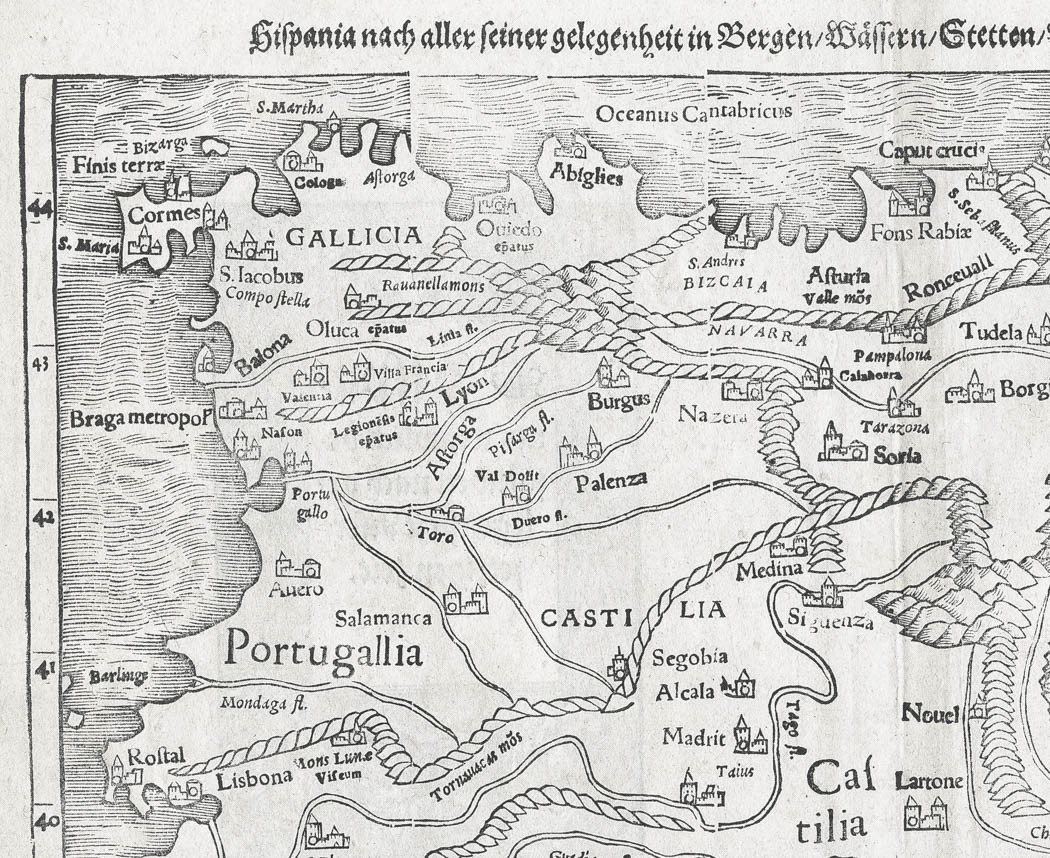 Hispania nach aller seiner gelegenheit in Bergen/Wässern/Stetten/
S. Martha
Oceanus Cantabricus
Bizarga
Finis terræ
Cologe
Astorga
Abiglies
Caput cruci⁹
44
Cormes
S. Maria
GALLICIA
Ouiedo
ep̃atus
Fons Rabiæ
S. Sebastianus
S. Iacobus
Compostella
Rauanellamons
S. Andris
BIZCAIA
Asturia
Valle mõs
Ronceuall
Oluca ep̃atus
Linia fl.
NAVARRA
Tudela
43
Baiona
Valentia
Villa Francia
Lyon
Pampalona
Calahorra
Burgus
Nazera
Borg
Braga metropol
Nason
Legionẽsis
ep̃atus
Astorga
Pisarga fl.
Tarazona
Soria
Val Dolit
Palenza
42
Portu
gallo
Toro
Duero fl.
Medina
Auero
Salamanca
CASTI LIA
Siguenza
Portugallia
41
Barlinge
Segobia
Mondaga fl.
Alcala
Nouel
Tago fl.
Rostal
Lisbona
Mons Lunæ
Viseum
Tornauacas mõs
Madrit
Taius
Cas
tilia
Lartone
40
Ch